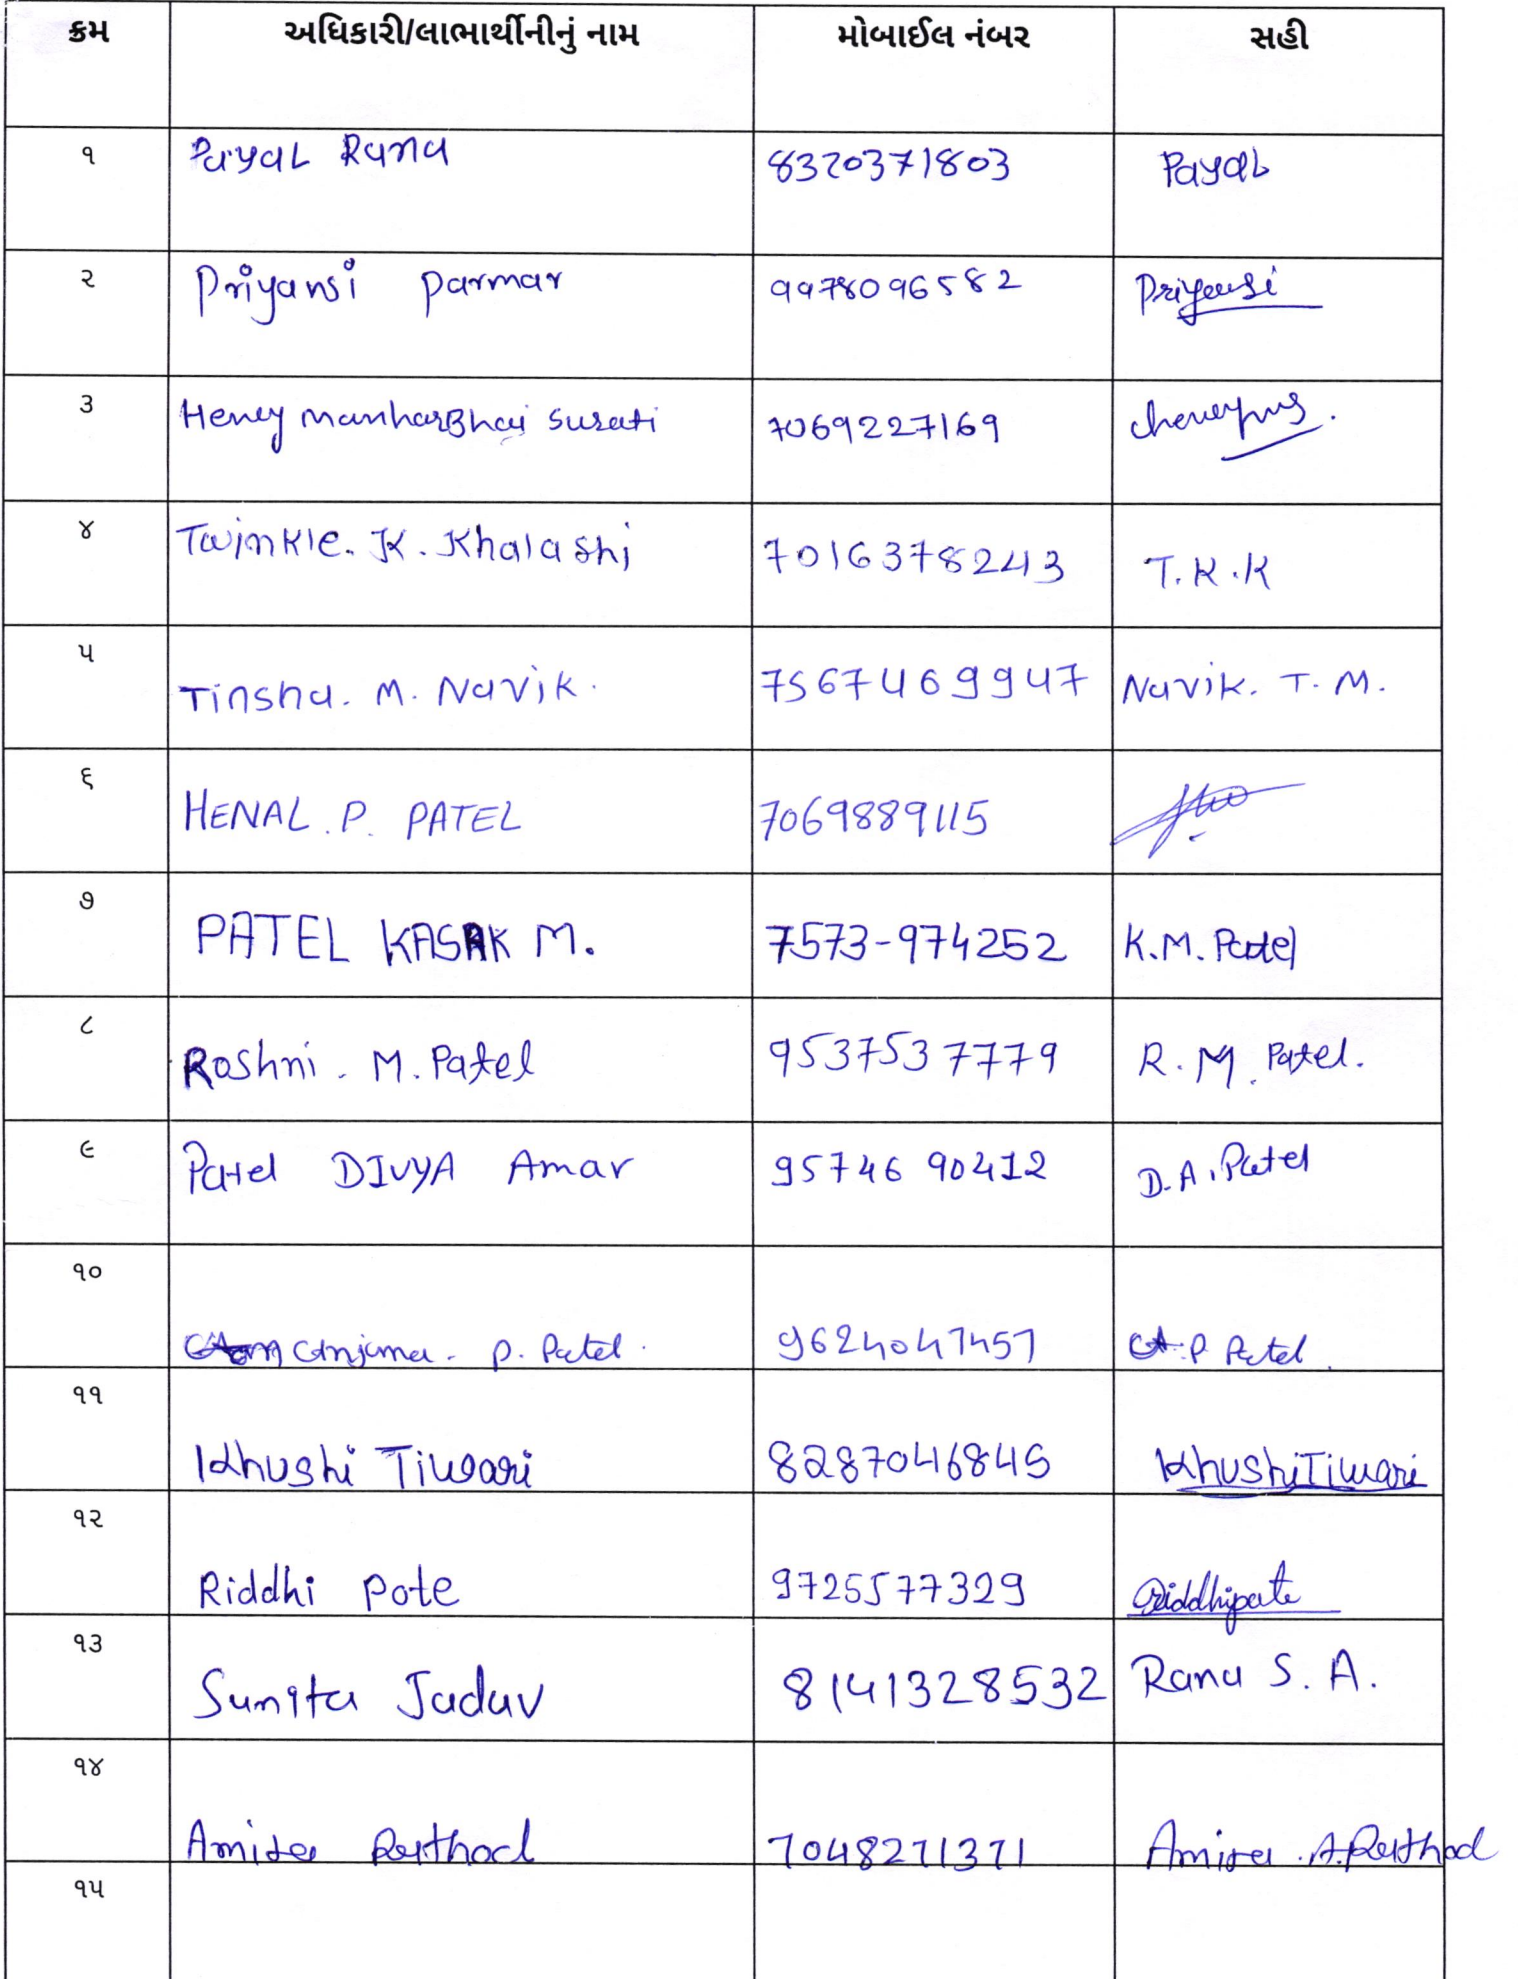 ક્રમ અધિકારી/લાભાર્થીનીનું નામ મોબાઈલ નંબર સહી
૧ Payal Rana 8320371803 Payal
૨ Priyansi Parmar 9978096582 Priyansi
૩ Heney manharBhai surati 7069227169
૪ Twinkle. K. Khalashi 7016378243 T.K.K
૫ Tinsha. M. Navik. 7567469947 Navik. T. M.
૬ HENAL. P. PATEL 7069889115
૭ PATEL KASAK M. 7573-974252 K.M. Patel
૮ Roshni. M. Patel 9537537779 R. M. Patel.
૯ Patel DIVYA Amar 95746 90412 D.A. Patel
૧૦ Anjana. P. Patel. 9624047457 A.P Patel.
૧૧ Khushi Tiwari 8287046845 Khushi Tiwari
૧૨ Riddhi Pote 9725577329 Riddhi pote
૧૩ Sunita Jadav 8141328532 Rana S. A.
૧૪ Amisa Rathod 7048271371 Amisa A. Rathod
૧૫